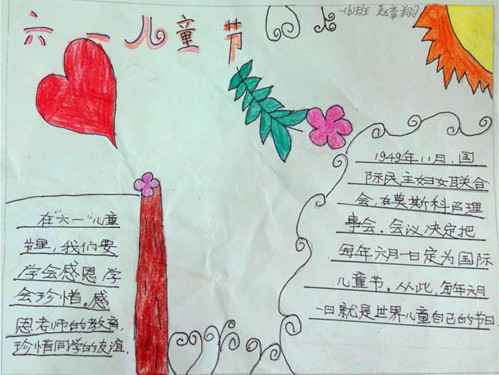 六一儿童节
一(6)班
在“六一”儿童
节里,我们要
学会感恩,学
会珍惜。感
恩老师的教育,
珍惜同学的友谊.
1949年11月,国
际民主妇女联合
会,在莫斯科召理
事会,会议决定把
每年六月一日定为国际
儿童节,从此,每年六月
一日就是世界儿童自己的节日